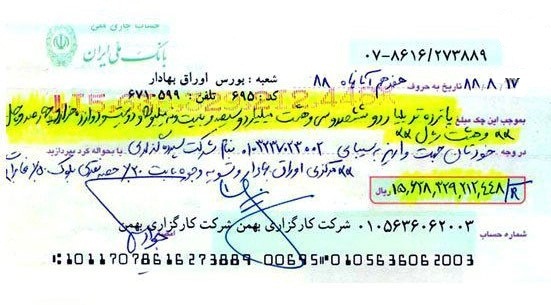 حساب جاری
بانک ملی ایران
۰۷-۸۶۱۶/۲۷۳۸۸۹
۸۸.۸.۱۷ تاریخ به حروف هفدهم آبانماه ۸۸ شعبه : بورس اوراق بهادار
کد : ۶۹۵ تلفن : ۶۷۱۰۵۹۹
بموجب این چک مبلغ پانزده تریلیارد و ششصد و سی و هشت میلیارد و سیصد و بیست و نه میلیون و دویست و دوازده هزار و چهارصد و چهل
و هشت ریال
در وجه خودتان جهت واریز به سیبای ۰۱۰۲۲۷۰۲۳۰۰۲ بنام شرکت سپرده گذاری یا بحواله کرد بپردازید
مرکزی اوراق بهادار و تسویه وجوه بابت ۲۰٪ حصه نقدی بلوک ۵۰٪
۱۵,۶۳۸,۳۲۹,۲۱۲,۴۴۸/R ریال
شماره حساب ۰۱۰۵۶۳۶۰۶۲۰۰۳ شرکت کارگزاری بهمن شرکت کارگزاری بهمن
:1011707861627388 9 00695 0105636062003